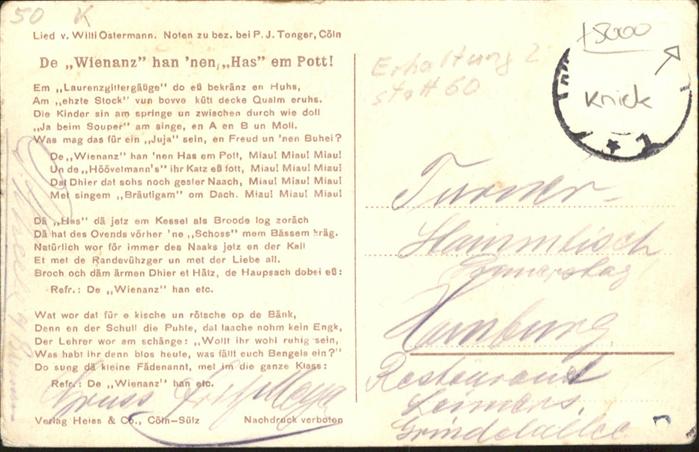 50 K
Lied v. Willi Ostermann. Noten zu bez. bei P. J. Tonger, Cöln
De „Wienanz" han 'nen „Has" em Pott!
Em „Laurenzgittergäßge" do eß bekränz en Huhs,
Am „ehzte Stock" vun bovve kütt decke Qualm eruhs.
Die Kinder sin am springe un zwischen durch wie doll
„Ja beim Souper" am singe, en A en B un Moll.
Was mag das für ein „Juja" sein, en Freud un 'nen Buhei?
De „Wienanz" han 'nen Has em Pott, Miau! Miau! Miau!
Un de „Höövelmann's" ihr Katz eß fott, Miau! Miau! Miau!
Dat Dhier dat sohs noch gester Naach, Miau! Miau! Miau!
Met singem „Bräutigam" om Dach. Miau! Miau! Miau!
Dä „Has" dä jetz em Kessel als Broode log zoräch
Dä hat des Ovends vörher 'ne „Schoss" mem Bässem kräg.
Natürlich wor för immer des Naaks jetz en der Kall
Et met de Randevühzger un met der Liebe all.
Broch och däm ärmen Dhier et Hätz, de Haupsach dobei eß:
Refr.: De „Wienanz" han etc.
Wat wor dat für e kische un rötsche op de Bänk,
Denn en der Schull die Puhte, dat laache nohm kein Engk,
Der Lehrer wor am schänge: „Wollt ihr wohl ruhig sein,
Was habt ihr denn blos heute, was fällt euch Bengels ein?"
Do sung dä kleine Fädenannt, met im die ganze Klass:
Refr.: De „Wienanz" han etc.
Gruss
Verlag Heiss & Co., Cöln-Sülz Nachdruck verboten
Erhaltung 2
statt 60
+5000
Knick
Turner-
Stammtisch
Donnerstag
Hamburg
Restaurant
Grindelallee